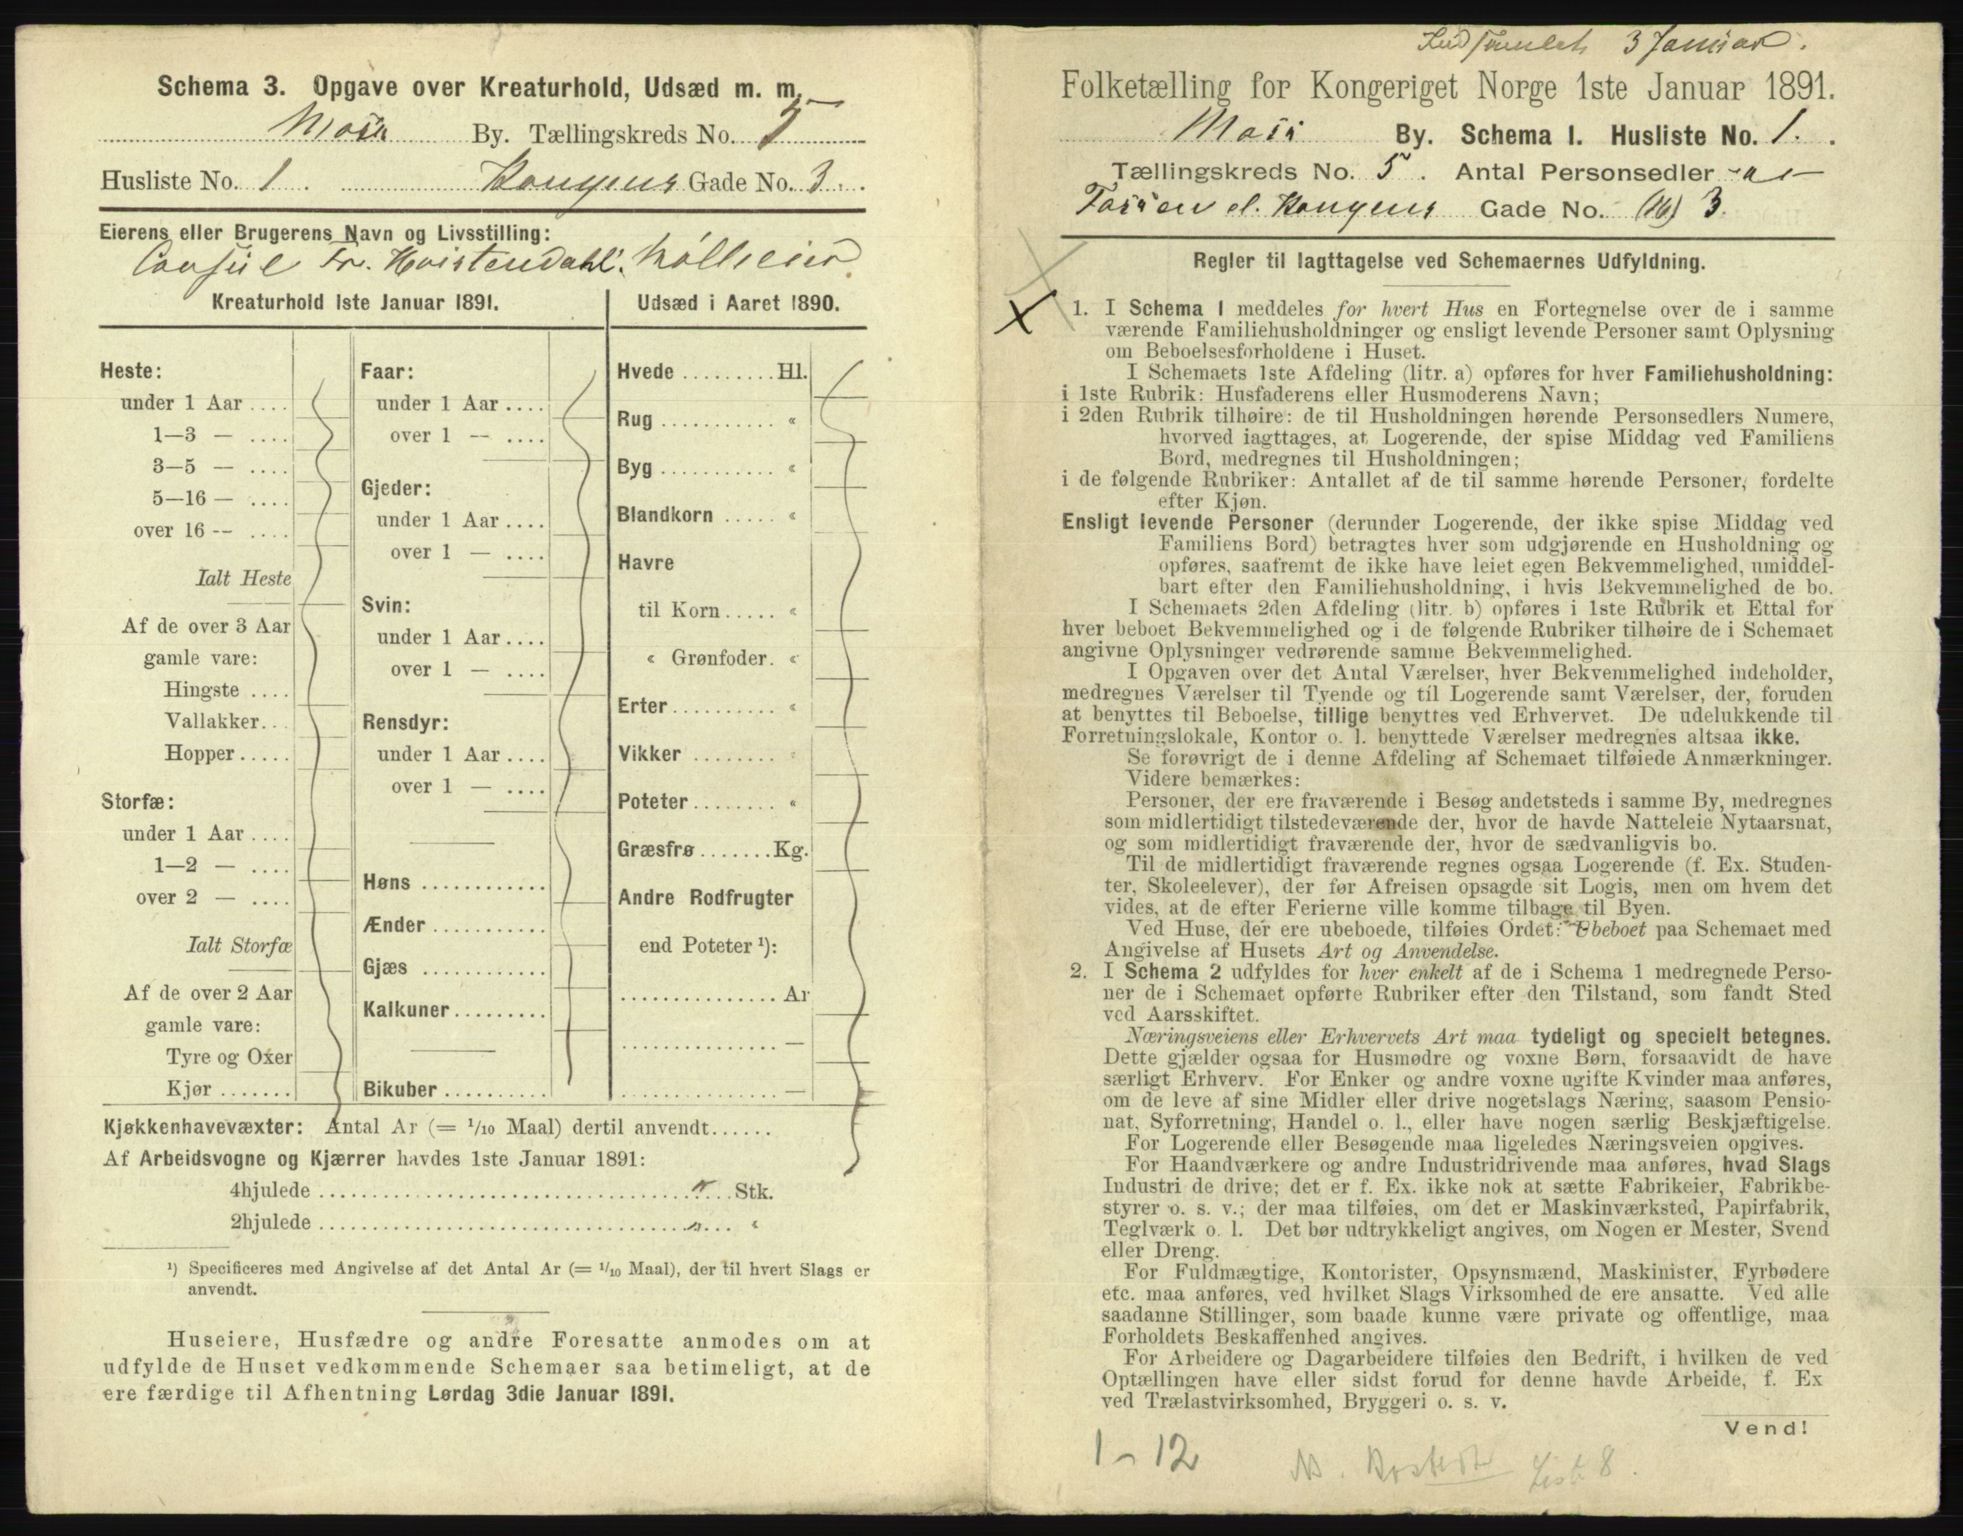 Schema 3. Opgave over Kreaturhold, Udsæd m. m.
Moss By. Tællingskreds No. 5
Husliste No. 1. Kongens Gade No. 3.
Eierens eller Brugerens Navn og Livsstilling:
Consul Fr. Hvistendahl. Mölleeier
Kreaturhold 1ste Januar 1891.
Heste:
under 1 Aar ....
1—3 — ....
3—5 — ....
5—16 — ....
over 16 — ....
Ialt Heste
Af de over 3 Aar
gamle vare:
Hingste ....
Vallakker...
Hopper.....
Storfæ:
under 1 Aar ....
1—2 — ....
over 2 — ....
Ialt Storfæ
Af de over 2 Aar
gamle vare:
Tyre og Oxer
Kjør .......
Faar:
under 1 Aar ....
over 1 — ....
Gjeder:
under 1 Aar ....
over 1 — ....
Svin:
under 1 Aar ....
over 1 — ....
Rensdyr:
under 1 Aar ....
over 1 — ....
Høns ............
Ænder ...........
Gjæs ............
Kalkuner.........
Bikuber..........
Udsæd i Aaret 1890.
Hvede .........Hl.
Rug ........... «
Byg ........... «
Blandkorn ..... «
Havre
til Korn ..... «
« Grønfoder. «
Erter.......... «
Vikker ........ «
Poteter........ «
Græsfrø.......Kg.
Andre Rodfrugter
end Poteter ¹):
...............Ar
...............—
...............—
Kjøkkenhavevæxter: Antal Ar (= 1/10 Maal) dertil anvendt......
Af Arbeidsvogne og Kjærrer havdes 1ste Januar 1891:
4hjulede .......... " ... Stk.
2hjulede .......... " ... «
¹) Specificeres med Angivelse af det Antal Ar (= 1/10 Maal), der til hvert Slags er
anvendt.
Huseiere, Husfædre og andre Foresatte anmodes om at
udfylde de Huset vedkommende Schemaer saa betimeligt, at de
ere færdige til Afhentning Lørdag 3die Januar 1891.
Indsamlet 3 Januar.
Folketælling for Kongeriget Norge 1ste Januar 1891.
Moss By. Schema I. Husliste No. 1.
Tællingskreds No. 5. Antal Personsedler
el. Kongens Gade No. (16) 3.
Regler til Iagttagelse ved Schemaernes Udfyldning.
1. I Schema 1 meddeles for hvert Hus en Fortegnelse over de i samme
værende Familiehusholdninger og ensligt levende Personer samt Oplysning
om Beboelsesforholdene i Huset.
I Schemaets 1ste Afdeling (litr. a) opføres for hver Familiehusholdning:
i 1ste Rubrik: Husfaderens eller Husmoderens Navn;
i 2den Rubrik tilhøire: de til Husholdningen hørende Personsedlers Numere,
hvorved iagttages, at Logerende, der spise Middag ved Familiens
Bord, medregnes til Husholdningen;
i de følgende Rubriker: Antallet af de til samme hørende Personer, fordelte
efter Kjøn.
Ensligt levende Personer (derunder Logerende, der ikke spise Middag ved
Familiens Bord) betragtes hver som udgjørende en Husholdning og
opføres, saafremt de ikke have leiet egen Bekvemmelighed, umiddel-
bart efter den Familiehusholdning, i hvis Bekvemmelighed de bo.
I Schemaets 2den Afdeling (litr. b) opføres i 1ste Rubrik et Ettal for
hver beboet Bekvemmelighed og i de følgende Rubriker tilhøire de i Schemaet
angivne Oplysninger vedrørende samme Bekvemmelighed.
I Opgaven over det Antal Værelser, hver Bekvemmelighed indeholder,
medregnes Værelser til Tyende og til Logerende samt Værelser, der, foruden
at benyttes til Beboelse, tillige benyttes ved Erhvervet. De udelukkende til
Forretningslokale, Kontor o. l. benyttede Værelser medregnes altsaa ikke.
Se forøvrigt de i denne Afdeling af Schemaet tilføiede Anmærkninger.
Videre bemærkes:
Personer, der ere fraværende i Besøg andetsteds i samme By, medregnes
som midlertidigt tilstedeværende der, hvor de havde Natteleie Nytaarsnat,
og som midlertidigt fraværende der, hvor de sædvanligvis bo.
Til de midlertidigt fraværende regnes ogsaa Logerende (f. Ex. Studen-
ter, Skoleelever), der før Afreisen opsagde sit Logis, men om hvem det
vides, at de efter Ferierne ville komme tilbage til Byen.
Ved Huse, der ere ubeboede, tilføies Ordet: Ubeboet paa Schemaet med
Angivelse af Husets Art og Anvendelse.
2. I Schema 2 udfyldes for hver enkelt af de i Schema 1 medregnede Perso-
ner de i Schemaet opførte Rubriker efter den Tilstand, som fandt Sted
ved Aarsskiftet.
Næringsveiens eller Erhvervets Art maa tydeligt og specielt betegnes.
Dette gjælder ogsaa for Husmødre og voxne Børn, forsaavidt de have
særligt Erhverv. For Enker og andre voxne ugifte Kvinder maa anføres,
om de leve af sine Midler eller drive nogetslags Næring, saasom Pensio-
nat, Syforretning, Handel o. l., eller have nogen særlig Beskjæftigelse.
For Logerende eller Besøgende maa ligeledes Næringsveien opgives.
For Haandværkere og andre Industridrivende maa anføres, hvad Slags
Industri de drive; det er f. Ex. ikke nok at sætte Fabrikeier, Fabrikbe-
styrer o. s. v.; der maa tilføies, om det er Maskinværksted, Papirfabrik,
Teglværk o. l. Det bør udtrykkeligt angives, om Nogen er Mester, Svend
eller Dreng.
For Fuldmægtige, Kontorister, Opsynsmænd, Maskinister, Fyrbødere
etc. maa anføres, ved hvilket Slags Virksomhed de ere ansatte. Ved alle
saadanne Stillinger, som baade kunne være private og offentlige, maa
Forholdets Beskaffenhed angives.
For Arbeidere og Dagarbeidere tilføies den Bedrift, i hvilken de ved
Optællingen have eller sidst forud for denne havde Arbeide, f. Ex
ved Trælastvirksomhed, Bryggeri o. s. v.
Vend!
1-12
List 8.